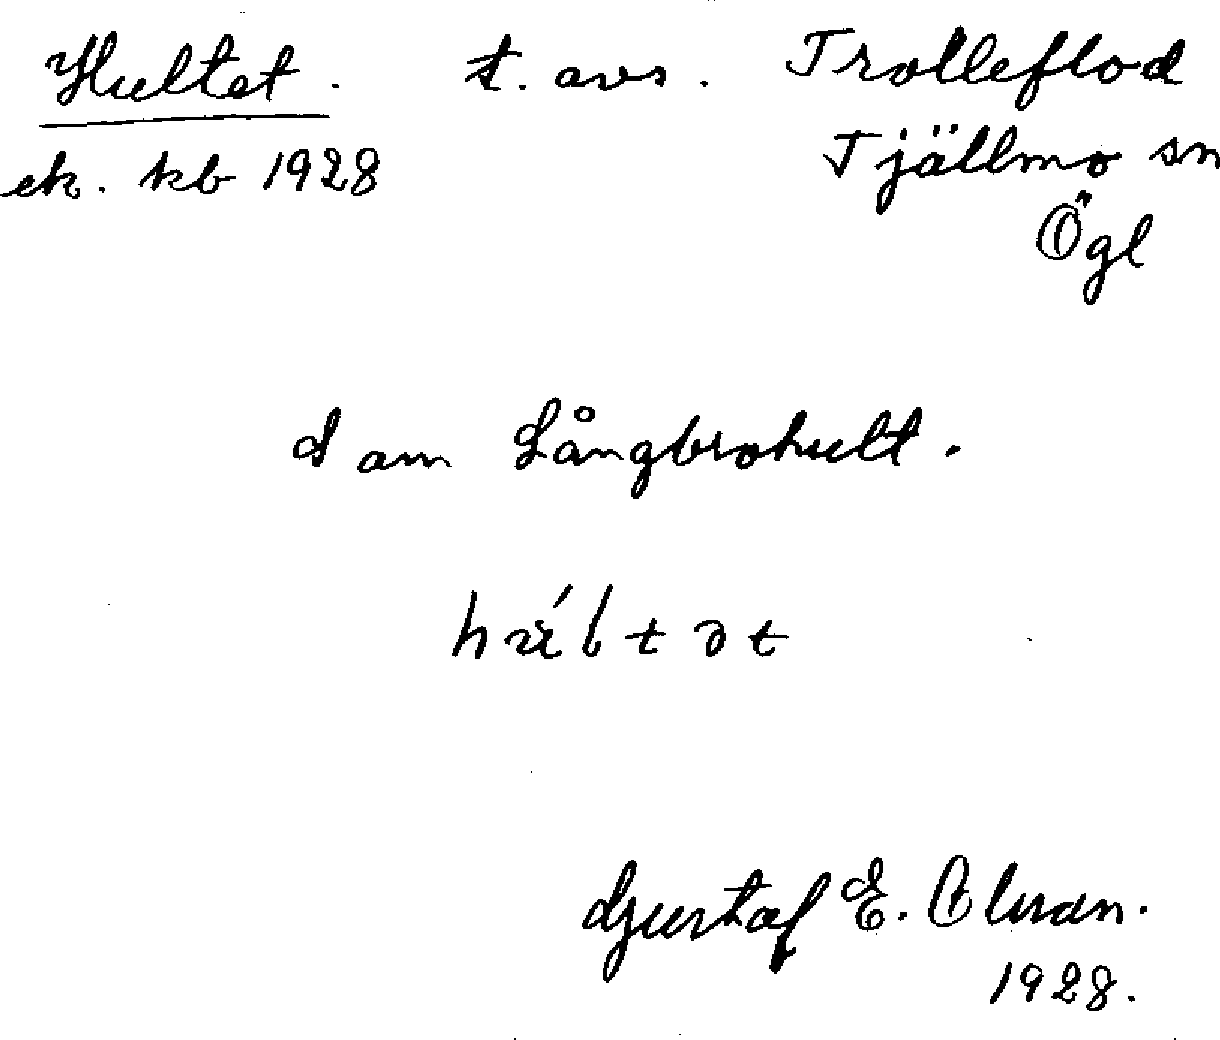 Hultet. t. avs. Trolleflod
ek. kb 1928 Tjällmo sn
Ögl
I am Långbrohult.
Gustaf E. Olsson.
1928.